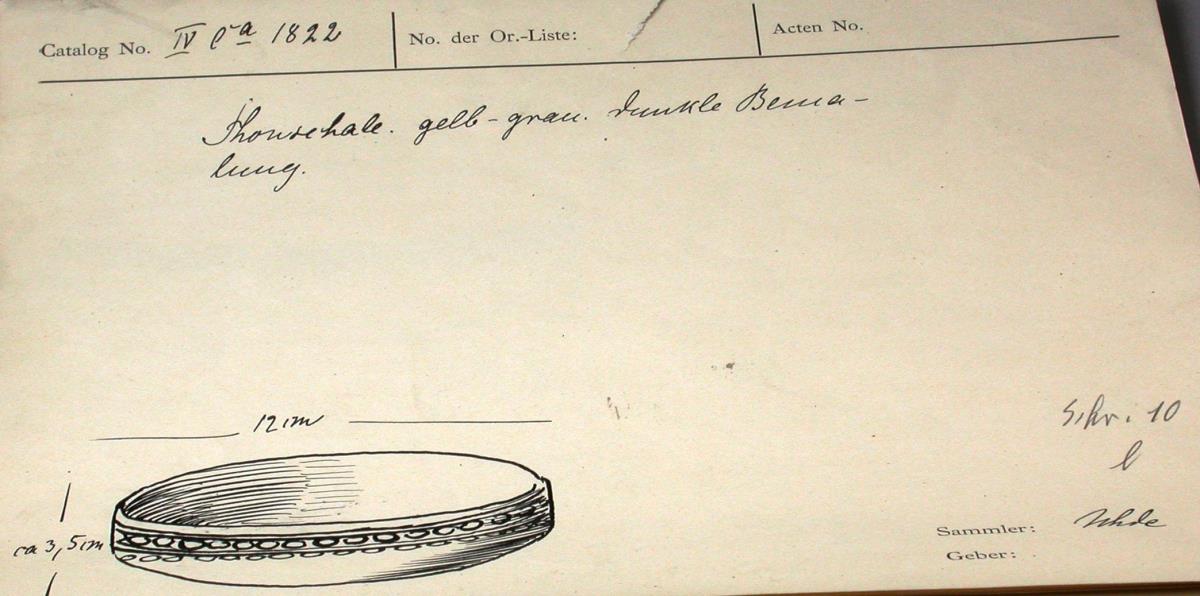 Catalog No. IV Ca 1822 No. der Or.-Liste: Acten No.
Thonschale. gelb-grau. dunkle Bema-
lung.
12 cm
Schr. 10
l
ca 3,5 cm
Sammler: Uhde
Geber: